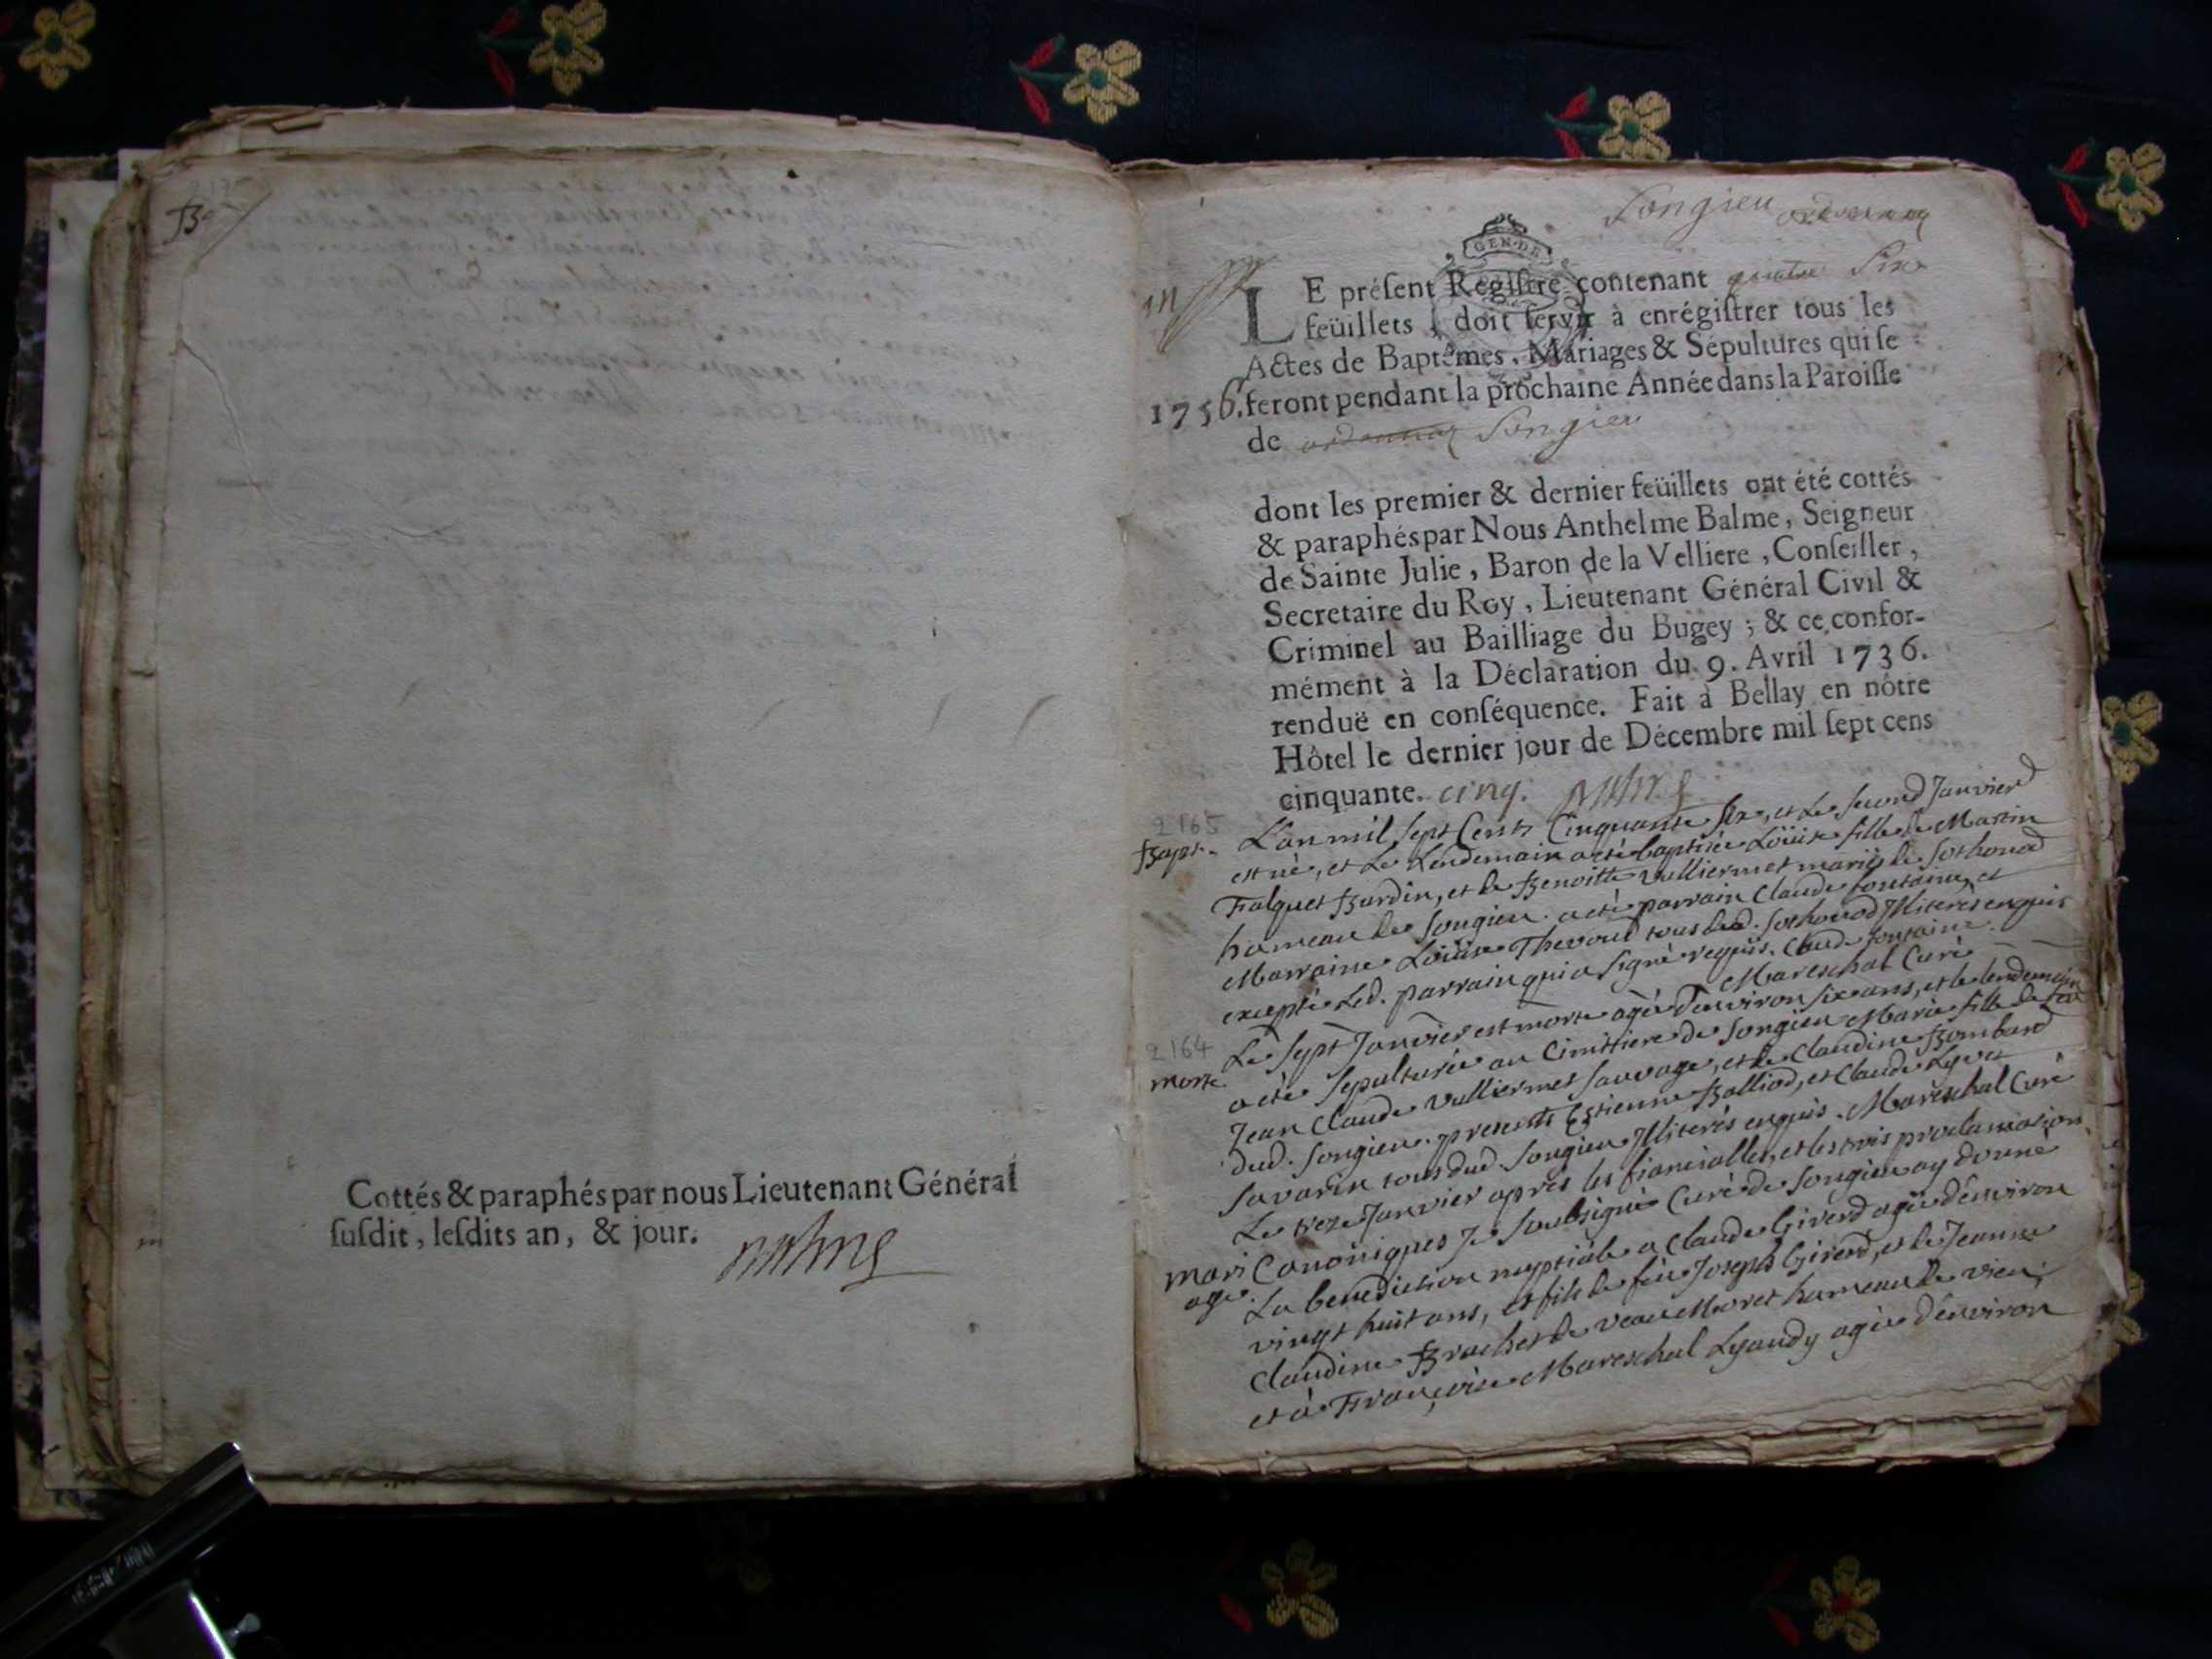 Cottés & paraphés par nous Lieutenant Général
ſuſdit, leſdits an, & jour.
Songieu
GEN·DE
LE préſent Regiſtre contenant Six
feüillets doit ſervir à enrégiſtrer tous les
Actes de Baptêmes, Mariages & Sépultures qui ſe
1756. feront pendant la prochaine Année dans la Paroiſſe
de Songieu
dont les premier & dernier feüillets ont été cottés
& paraphés par Nous Anthelme Balme, Seigneur
de Sainte Julie, Baron de la Velliere, Conſeiller,
Secretaire du Roy, Lieutenant Général Civil &
Criminel au Bailliage du Bugey; & ce confor-
mément à la Déclaration du 9. Avril 1736.
renduë en conſéquence. Fait à Bellay en nôtre
Hôtel le dernier jour de Décembre mil ſept cens
cinquante. cinq.
2165
Bapt. L'an mil sept Cents Cinquante six, et le second Janvier
est né, et le lendemain a eté baptisée Loüise fille de Martin
Falquet Bardin, et de Benoitte Vulliermet mariés de Sothonod
hameau de Songieu. a eté parrain Claude fontaine, et
Marraine Loüise Thevoud tous dud. Sothonod Illiteres enquis
excepté led. parrain qui a signé requis. Claude fontaine.
Mareschal Curé
2164
morte. Le sept Janvier est morte agée d'environ six ans, et le lendemain
a eté sepulturée au Cimittiere de Songieu Marie fille de feu
Jean Claude Vulliermet Sauvage, et de Claudine Bombard
dud. Songieu. presents Estienne Balliod, et Claude Lyvet
Savarin tous dud. Songieu Illiterés enquis. Mareschal Curé
Le treze Janvier apres les fiancialles, et les trois proclamations
mari Canoniques Je Soubsigné Curé de Songieu ay donné
age. La benediction nuptiale a Claude Girerd agé d'environ
vingt huit ans, et fils de feu Joseph Girerd, et de Jeanne
Claudine Brachet de Veau Moret hameau de vieu;
et à Françoise Mareschal Lyaudy agée d'environ